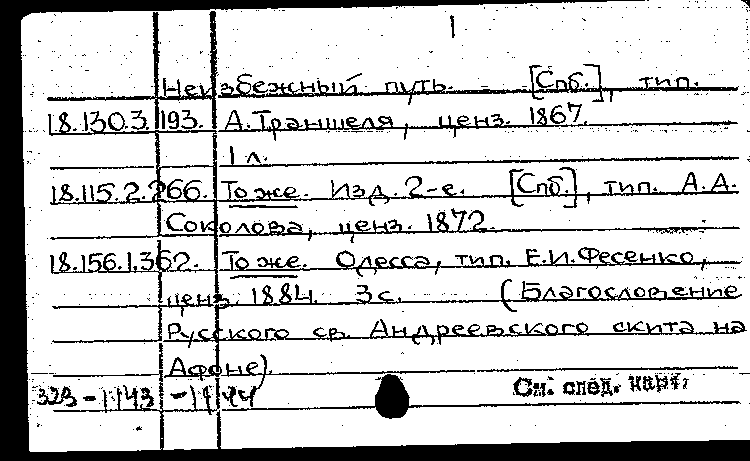 1
Неизбежный путь. - [Спб.], тип.
18.130.3.193. А. Траншеля, ценз. 1867.
1 л.
18.115.2.266. То же. Изд. 2-е. [Спб.], тип. А.А.
Соколова, ценз. 1872.
18.156.1.362. То же. Одесса, тип. Е.И. Фесенко,
ценз. 1884. 3 с. (Благословение
Русского св. Андреевского скита на
Афоне).
См. след. карт.